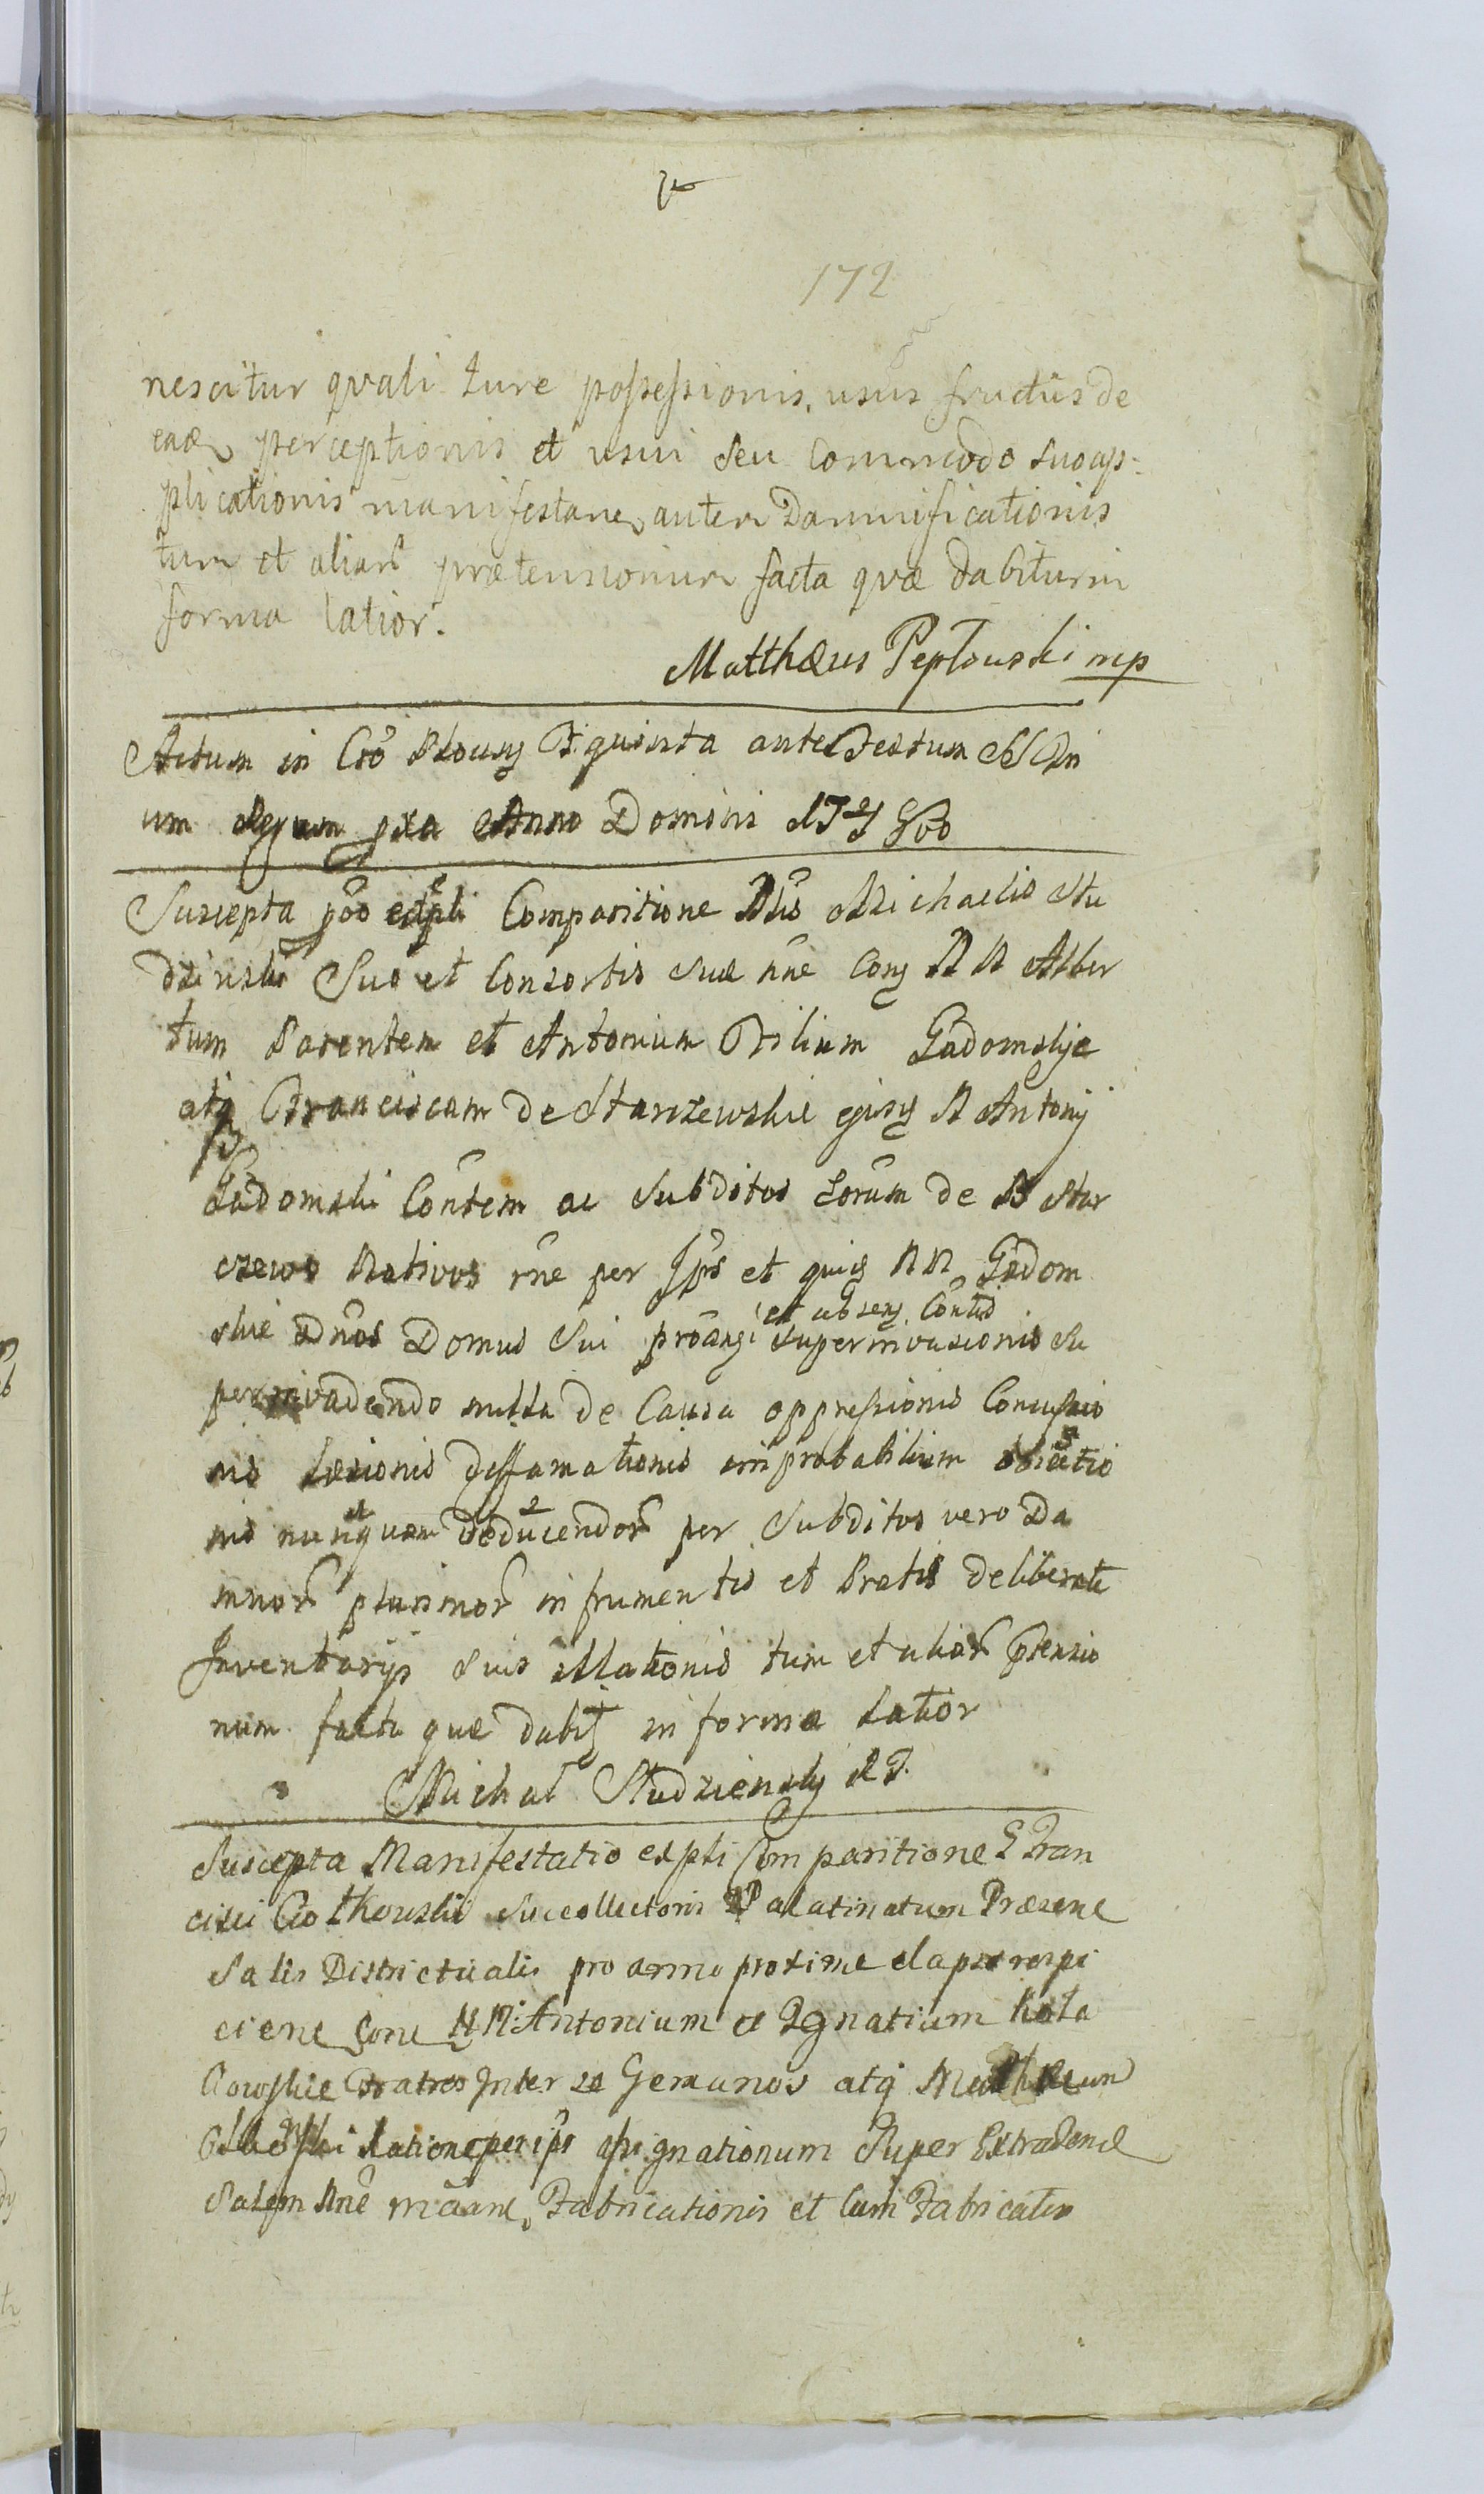 172
nescitur quali Iure possessionis, usus fructus de
eade perceptionis et usui seu Commodo suo ap:
plicationis manifestane autem Damnificationis
tum et aliar prætensionum facta quæ dabitur in
forma latior.
Matthæus Peptowski mp
Actum in Plocen F. quinta ante Festum SS Tri
um Regum pxa Anno Domini
Suscepta Comparitione Nlis Michaelis Stu
dzinski Suo et Consortis suæ nne Con N N Alber
tum Parentem et Antonium Filium Gadomskie
atq Franciscam de Starczewskie N Antonij
Gadomski Contem ac Subditos Eorum de B Star
czewo Nativos rne per Ips et N N Gadom
skie Domus Sui et absen Contis superinvasionis Su
perinvadendo nulla de Causa oppressionis Concussio
nis læsionis deffamationis improbabilium obiectio
nis nunquam deducendor per Subditos vero Da
mnor plurimor in frumentis et Pratis deliberate
Inventarijs suis illationis tum et aliar ptensio
num facta quæ dabit in forma latior
Michał Studziensky
Suscepta Manifestatio expli Comparitione G Fran
cisci Succollectoris Palatinatum
Salis Districtualis pro anno proxime elapso respi
ciene Cone N N: Antonium et Ignatium
Fratres Inter se Germanos atq Matthæum
ratione per ips assignationum Super
Salem Fabricationis et Cum Fabricatis